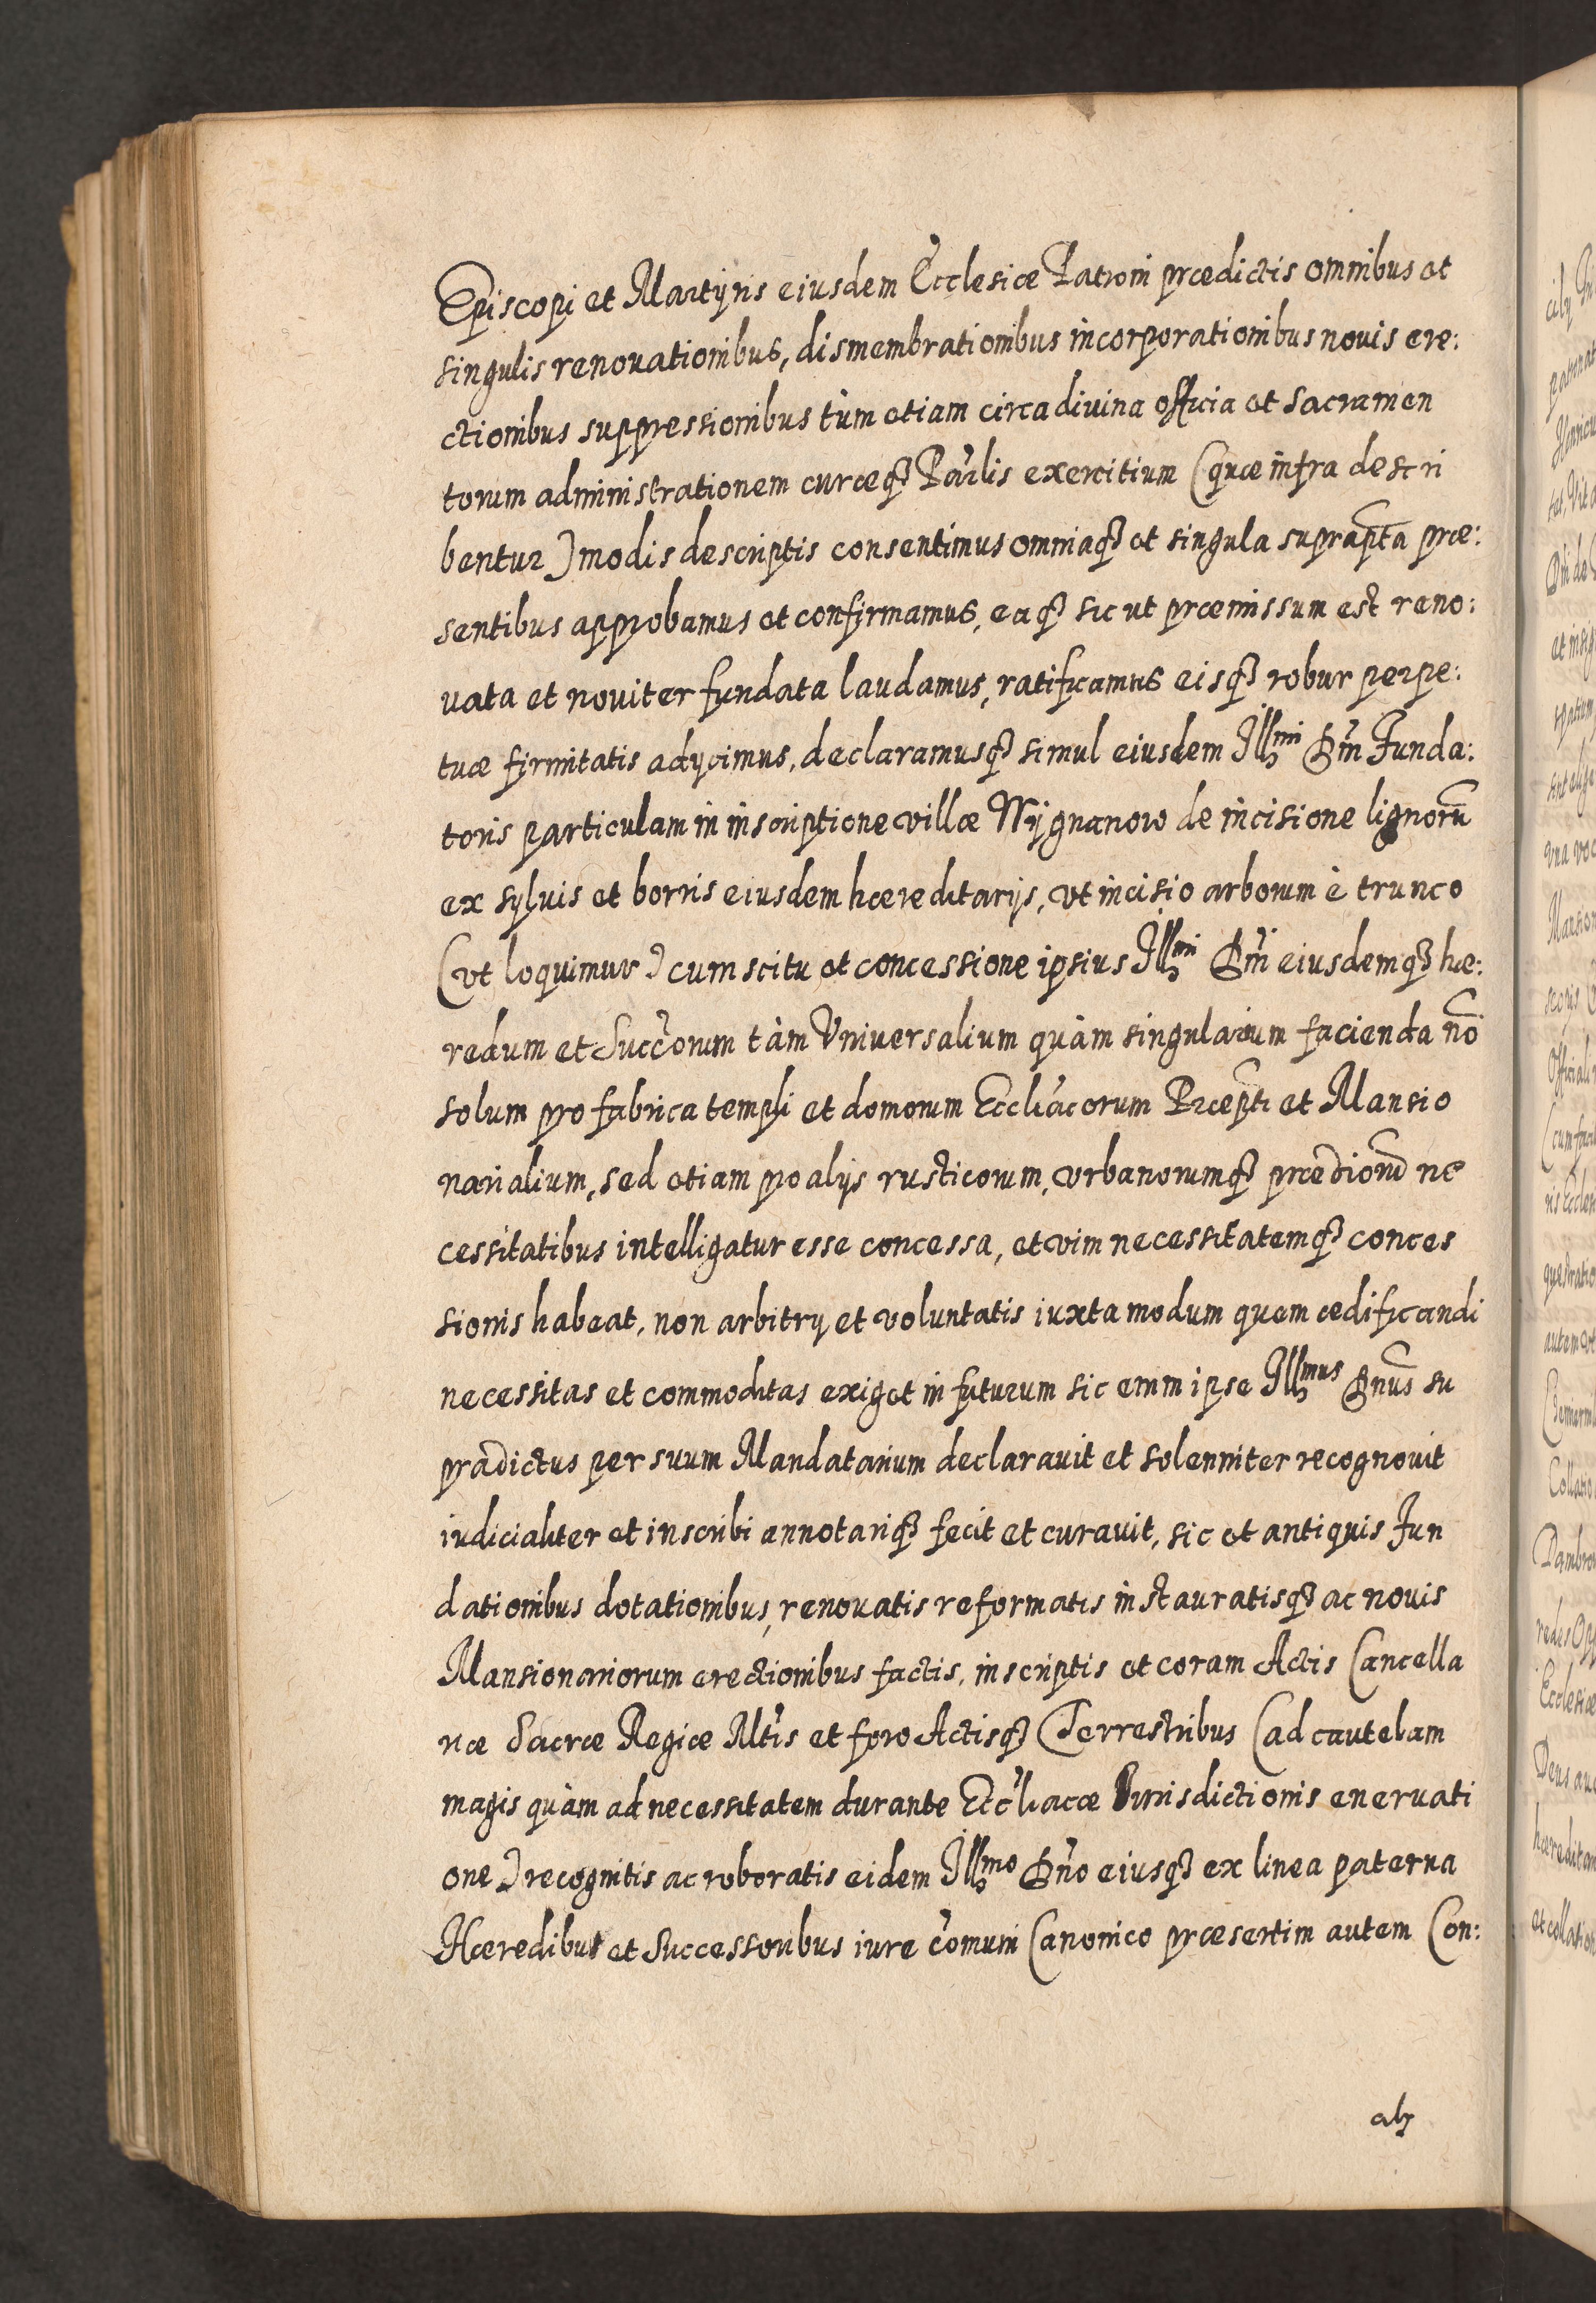 Episcopi et Martÿris eiusdem Ecclesiæ Patroni prædictis omnibus et
singulis renouationibus, dismembrationibus incorporationibus nouis ere:
ctionibus suppressionibus tùm etiam circa diuina officia et Sacramen
torum administrationem curæq3 Pạrlis exercitium (quæ infra descri
bentur) modis descriptis consentimus omniaq3 et singula suprapta præ:
sentibus approbamus et confirmamus, eaq3 sicut præmissum est reno:
uata et nouiter fundata laudamus, ratificamus eisq3 robur perpe:
tuæ firmitatis adycimus, declaramusq3 simul eiusdem Illmi Dni Funda:
toris particulam in inscriptione villæ Wÿgnanow de incisione lignorū
ex sylvis et borris eiusdem hæreditarijs, vt incisio arborum è trunco
(vt loquimur) cum scitu et concessione ipsius Illmi Dni eiusdemq3 hæ:
redum et Succorum tàm Vniuersalium quàm singularium facienda nō
solum pro fabrica templi et domorum Eccliacorum Præpti et Mansio
narialium, sed etiam pro alijs rusticorum, vrbanorumq3 prædiorū ne
cessitatibus intelligatur esse concessa, et vim necessitatemq3 conces
sionis habeat, non arbitry et voluntatis iuxta modum quem ædificandi
necessitas et commoditas exiget in futurum sic enim ipse Illmus Dnus su
pradictus per suum Mandatarium declarauit et solenniter recognouit
iudicialiter et inscribi annotariq3 fecit et curauit, sic et antiquis Fun
dationibus dotationibus, renouatis reformatis instauratisq3 ac nouis
Mansionariorum erectionibus factis, inscriptis et coram Actis Cancella
riæ Sacræ Regiæ Mltis et foro Actisq3 Terrestribus (ad cautelam
magis quàm ad necessitatem durante Eccliacæ Iurisdictionis eneruati
one) recognitis ac roboratis eidem Illmo Dno eiusq3 ex linea paterna
Hæredibus et Successoribus iure comuni Canonico præsertim autem Con:
aly